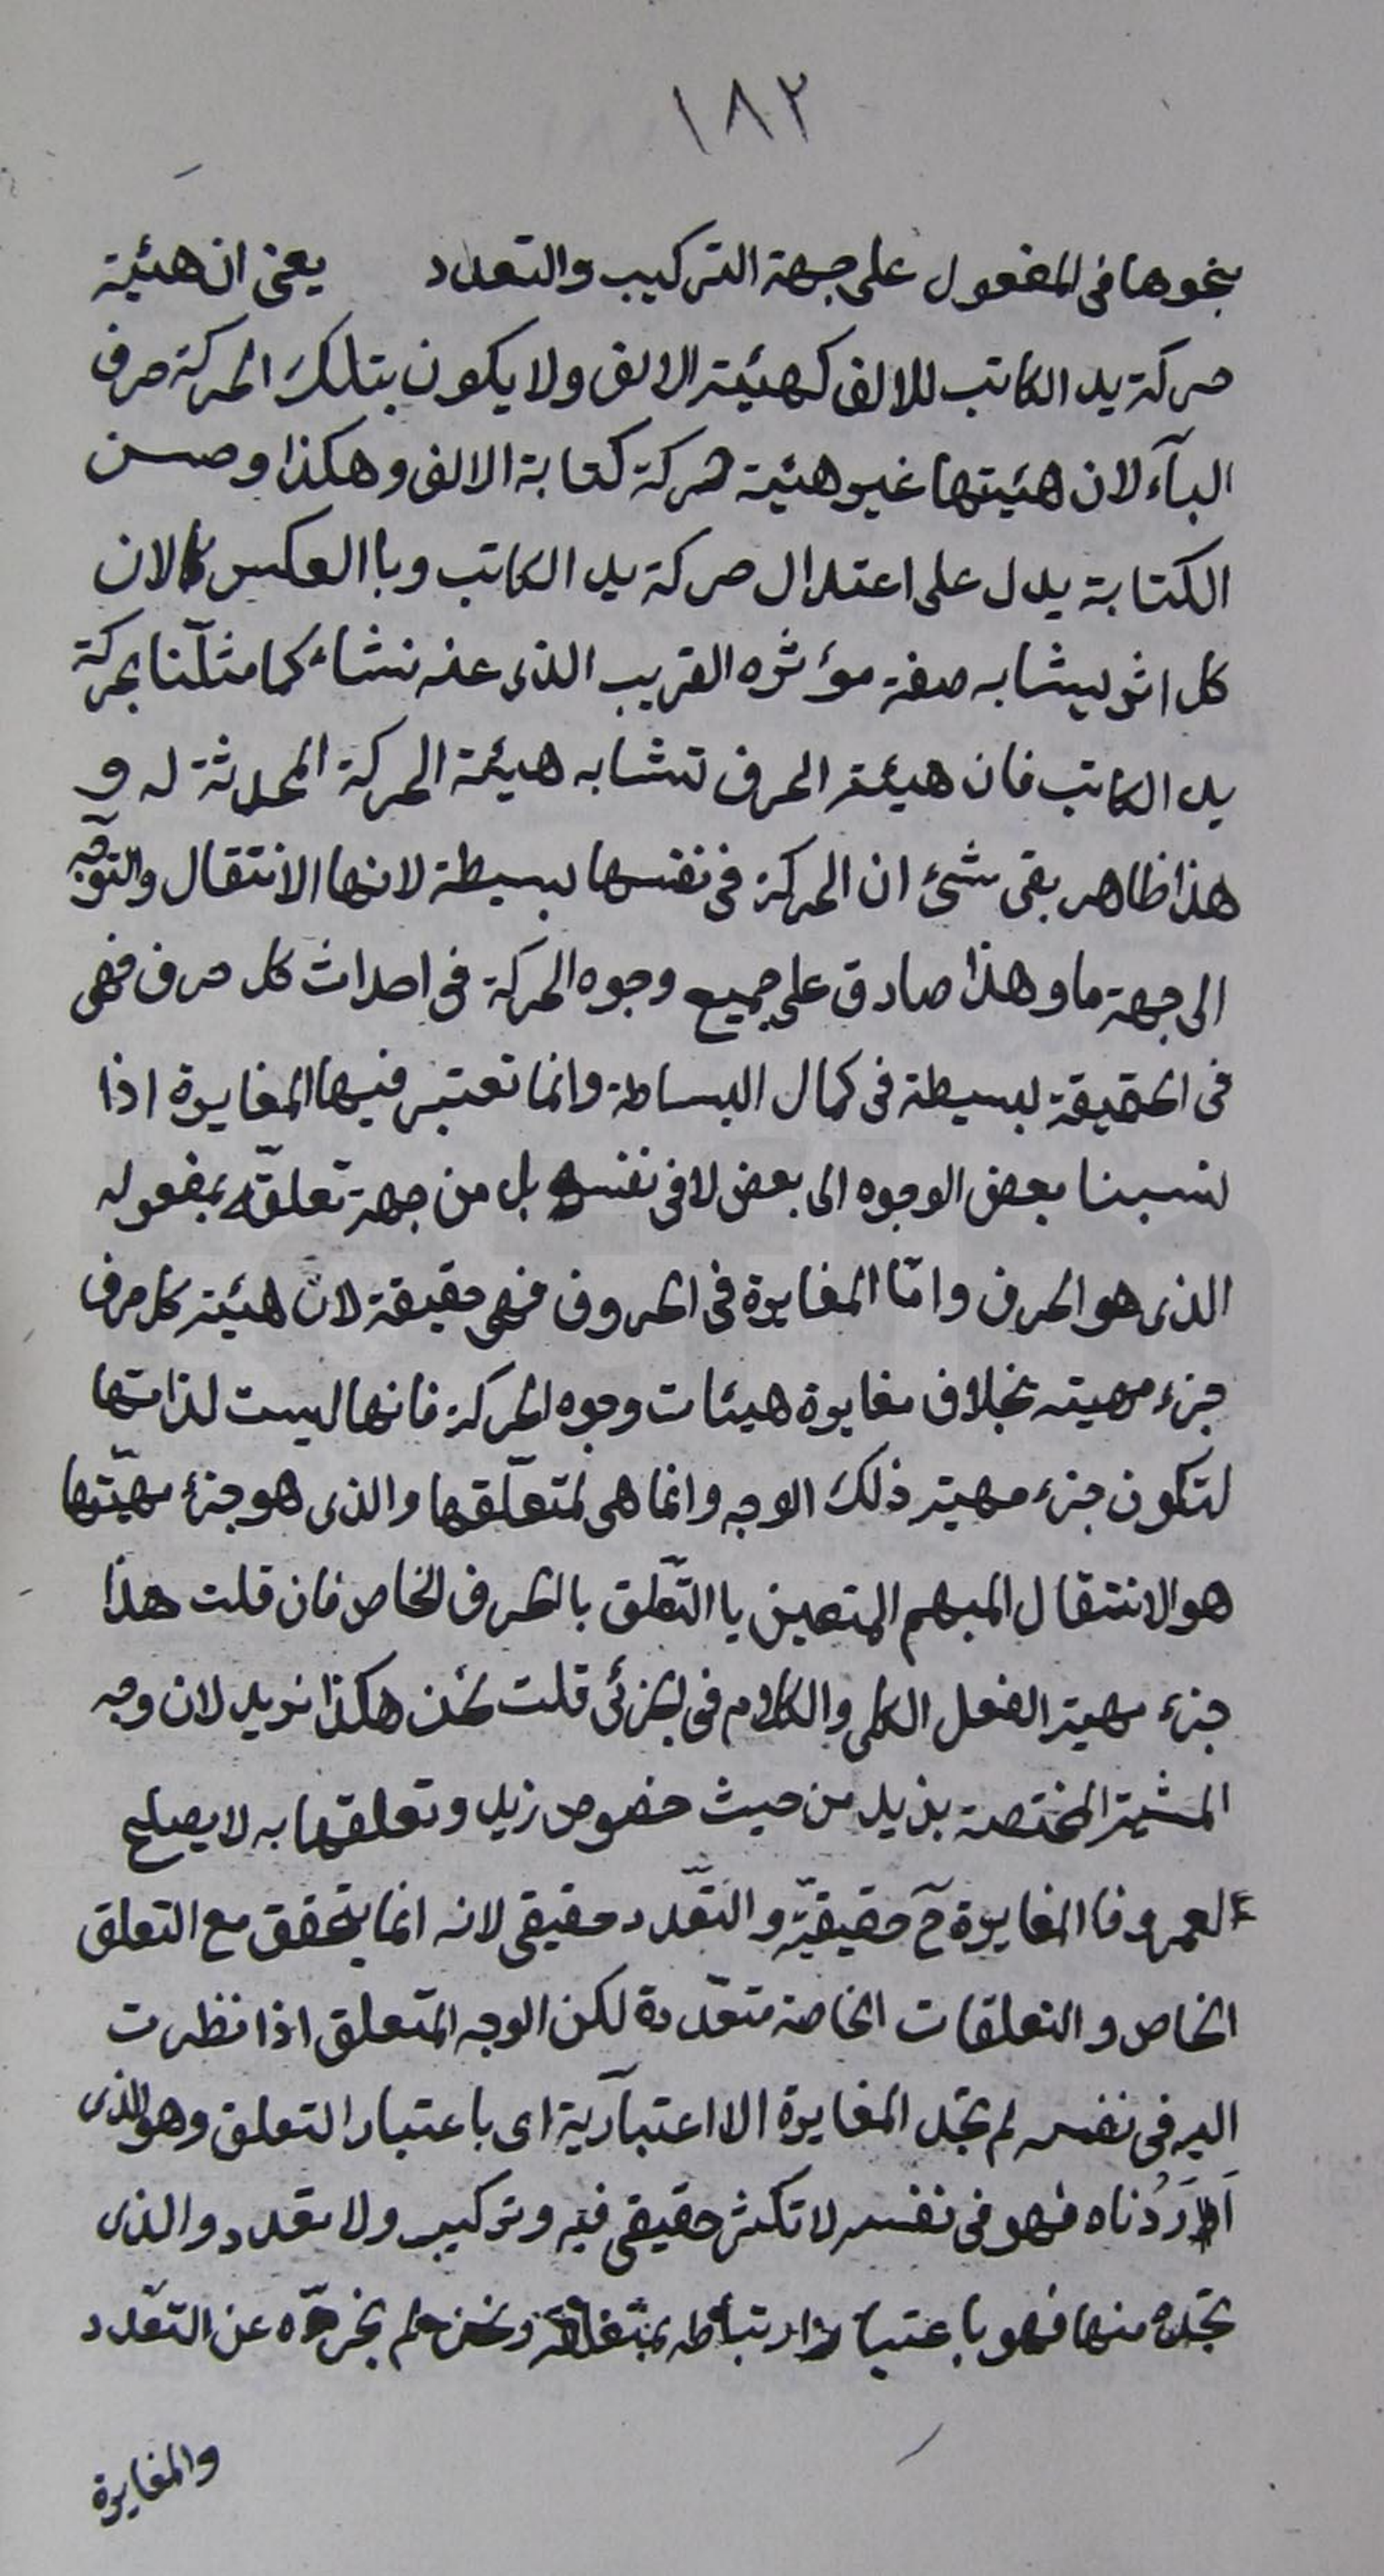 ١٨٢
بنحوها فى المفعول على جهة التركيب والتعدد يعنى ان هيئة
حركة يد الكاتب للالف كهيئة الالف ولا يكون بتلك الحركة حرف
البآء لان هيئتها غير هيئة حركة كتابة الالف وهكذا وحسن
الكتابة يدل على اعتدال حركة يد الكاتب وبا العكس لان
كل اثر يشابه صفة مؤثره القريب الذى عنه نشاء كما مثلنا بحركة
يد الكاتب فان هيئة الحرف تشابه هيئة الحركة المحدثة له و
هذا ظاهر بقى شئ ان الحركة فى نفسها بسيطة لانها الانتقال والتوجّه
الى جهة ما وهذا صادق على جميع وجوه الحركة فى احداث كل حرف فهى
فى الحقيقة بسيطة فى كمال البساطة وانما تعتبر فيها المغايرة اذا
نسبنا بعض الوجوه الى بعض لا فى نفسه بل من جهة تعلقه بمفعوله
الذى هو الحرف وامّا المغايرة فى الحروف فهى حقيقة لان هيئة كل حرف
جزء مهيته بخلاف مغايرة هيئات وجوه الحركة فانها ليست لذاتها
لتكون جزء مهية ذلك الوجه وانما هى لمتعلّقها والذى هو جزء مهيّتها
هو الانتقال المبهم المتعين با التعلّق بالحرف الخاص فان قلت هذا
جزء مهية الفعل الكلى والكلام فى الجزئى قلت نحن هكذا نريد لان وجه
المشية المختصة بزيد من حيث خصوص زيد وتعلقها به لا يصلح
لعمرو فا المغايرة ح حقيقيّة والتعدّد حقيقى لانه انما يتحقق مع التعلق
الخاص والتعلقات الخاصة متعدّدة لكن الوجه المتعلق اذا نظرت
اليه فى نفسه لم تجد المغايرة الا اعتبارية اى باعتبار التعلق وهو الذى
اَرَدْناه فهو فى نفسه لا تكثر حقيقى فيه وتركيب ولا تعدد والذى
تجده منها فهو باعتبار ارتباطه بمتعلقه ونحن لم نجرّده عن التعدّد
والمغايرة